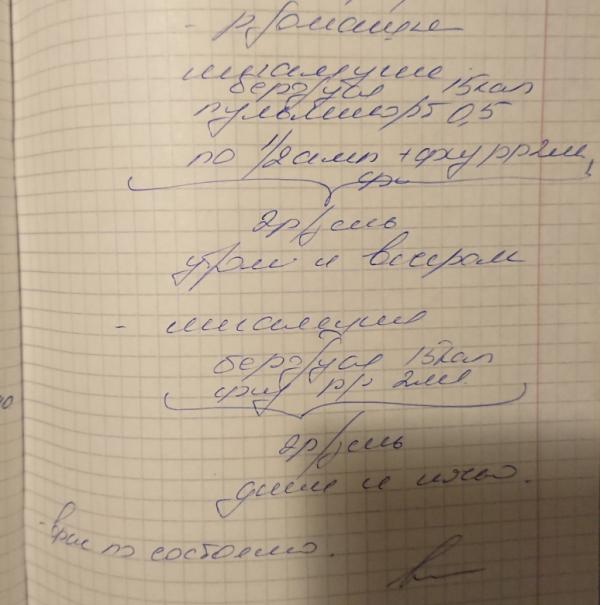 - р/ромашки
ингаляции
беродуал 15 кап
пульмикорт 0,5
по 1/2 амп + физ р-р 2 мл
2 р/день
утром и вечером
- ингаляция
беродуал 15 кап
физ р-р 2 мл
2 р/день
днем и ночью.
- врач по состоянию.